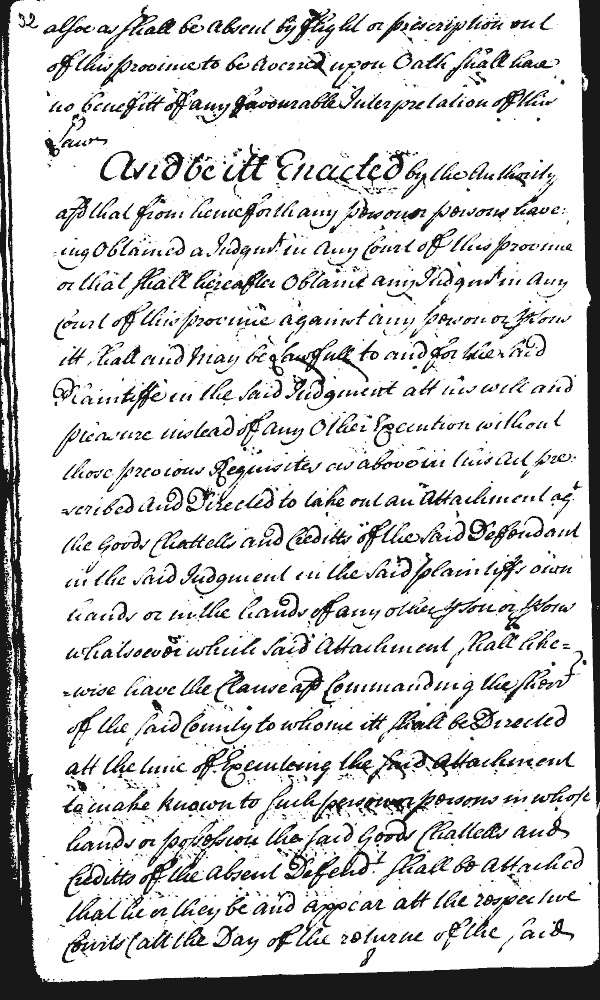 32 alsoe as shall be absent by flight or prescription out
of this Province to be averred upon Oath shall have
no benefitt of any favourable Interpretation of this
Law
And be itt Enacted by the Authority
afd that from henceforth any person or persons have-
-ing Obtained a Judgmt in any Court of this Province
or that shall hereafter Obtaine any Judgmt in any
Court of this province against any person or psons
itt shall and may be lawfull to and for the said
Plaintiffe in the said Judgment att his will and
pleasure instead of any Other Execution without
those previous Requisites as above in this act pre-
-scribed and Directed to take out an Attachment agt
the Goods Chattells and Creditts of the said Defendant
in the said Judgment in the said plaintiffs own
hands or in the hands of any other pson or psons
whatsoever which said Attachment shall like=
=wise have the Clause afd Commanding the sherr
of the said County to whome itt shall be Directed
att the time of Executing the said Attachment
to make known to such person or persons in whose
hands or possession the said Goods Chattells and
Creditts of the absent Defendt shall be Attached
that he or they be and appear att the respective
Courts (att the Day of the returne of the said